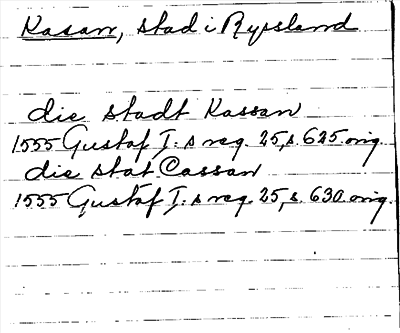 Kasan, stad i Ryssland
die stadt Kassan
1555 Gustaf I:s reg. 25, s. 625. orig.
die stat Cassan
1555 Gustaf I:s reg. 25, s. 630. orig.